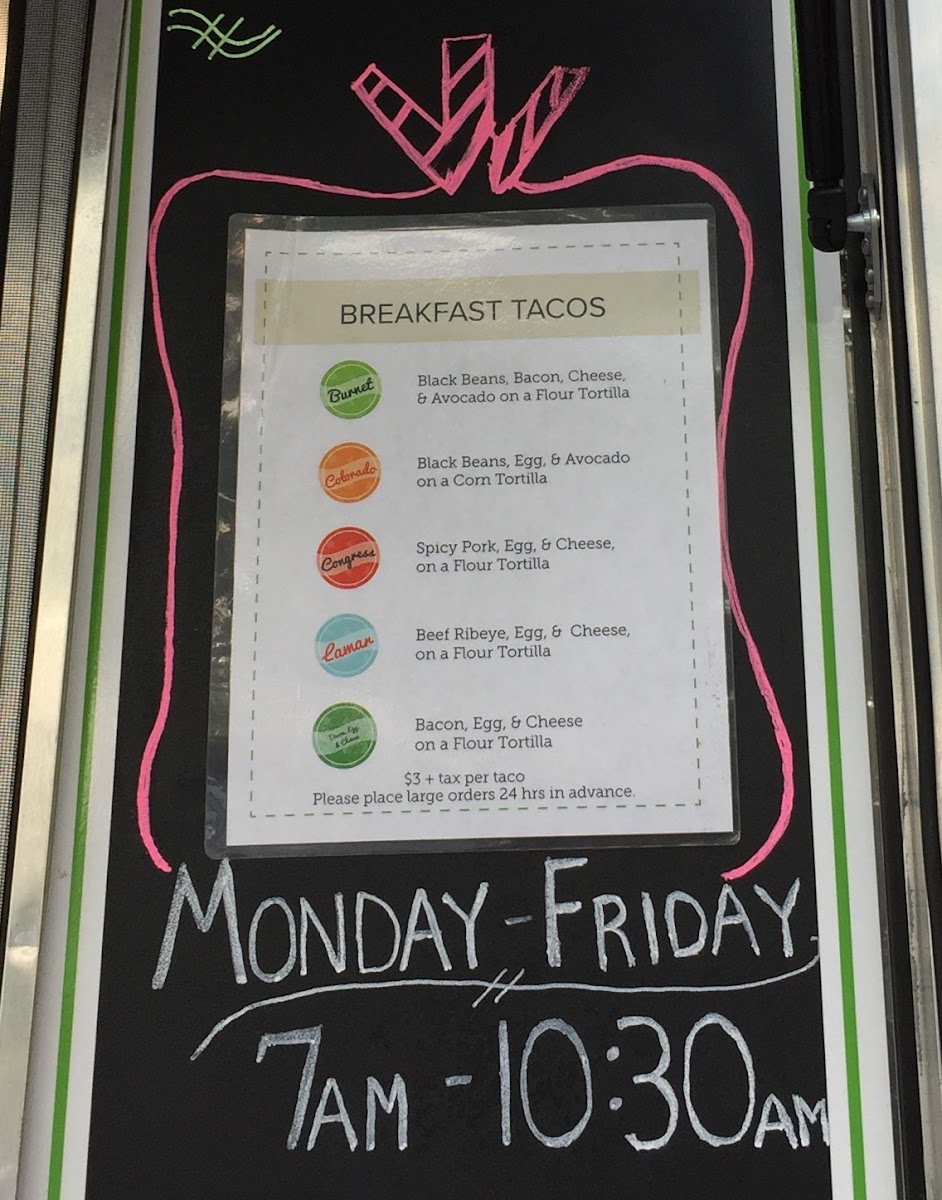 BREAKFAST TACOS
Burnet
Black Beans, Bacon, Cheese,
& Avocado on a Flour Tortilla
Colorado
Black Beans, Egg, & Avocado
on a Corn Tortilla
Congress
Spicy Pork, Egg, & Cheese,
on a Flour Tortilla
Lamar
Beef Ribeye, Egg, & Cheese,
on a Flour Tortilla
Bacon, Egg,
& Cheese
Bacon, Egg, & Cheese
on a Flour Tortilla
$3 + tax per taco
Please place large orders 24 hrs in advance.
MONDAY-FRIDAY
7AM - 10:30AM